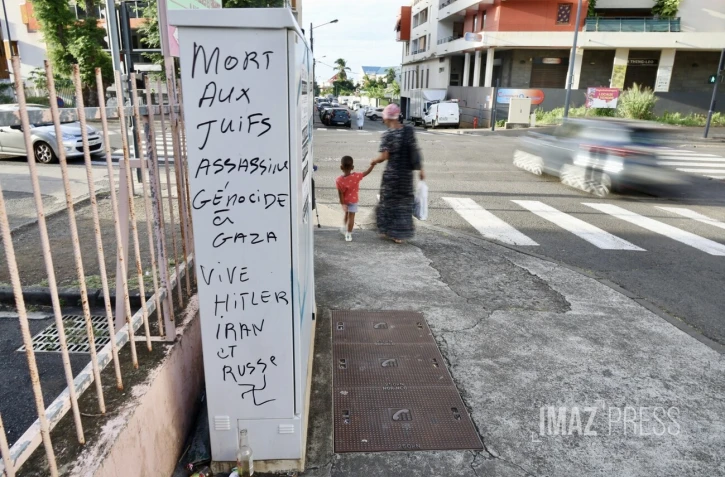 MORT
AUX
JUIFS
ASSASSINS
GÉNOCIDE
à
GAZA
VIVE
HITLER
IRAN
et
RUSSe
IMAZ PRESS